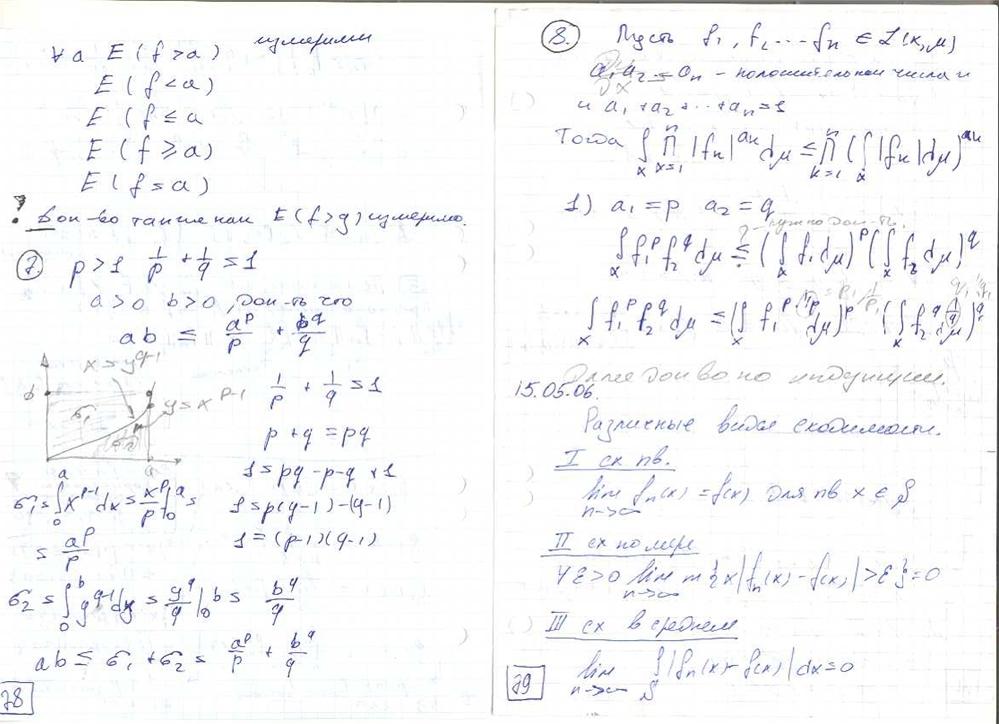 ∀ a E (f > a) измерими
E (f < a)
E (f ≤ a
E (f ≥ a)
E (f = a)
? Док-во также как E (f > g) измеримо.
7 p > 1 1/p + 1/q = 1
a > 0 b > 0, док-ть что
ab ≤ a^p/p + b^q/q
x = y^{q-1}
b
σ₁
y = x^{p-1}
σ₂
a
a
1/p + 1/q = 1
p + q = pq
1 = pq - p - q + 1
1 = p(q-1) - (q-1)
1 = (p-1)(q-1)
σ₁ = ∫₀^a x^{p-1} dx = x^p/p |₀^a =
= a^p/p
σ₂ = ∫₀^b y^{q-1} dy = y^q/q |₀^b = b^q/q
ab ≤ σ₁ + σ₂ = a^p/p + b^q/q
78
8. Пусть f₁, f₂ ... fₙ ∈ L(x, μ)
a₁ a₂ ... aₙ - положительные числа и
и a₁ + a₂ + ... + aₙ = 1
Тогда ∫_x ∏_{k=1}^n |f_k|^{a_k} dμ ≤ ∏_{k=1}^n (∫_x |f_k| dμ)^{a_k}
1) a₁ = p a₂ = q
? - нужно док-ть.
∫_x f₁^p f₂^q dμ ≤ (∫_x f₁ dμ)^p (∫_x f₂ dμ)^q
∫_x f₁^p f₂^q dμ ≤ (∫_x f₁^{p·1/p} dμ)^p (∫_x f₂^{q·1/q} dμ)^q
Далее док-во по индукции.
15.05.06.
Различные виды сходимости.
I сх пв.
lim_{n→∞} fₙ(x) = f(x) для пв x ∈ S
II сх по мере
∀ε > 0 lim_{n→∞} m{x |fₙ(x) - f(x)| > ε} = 0
III сх в среднем
lim_{n→∞} ∫_S |fₙ(x) - f(x)| dx = 0
79